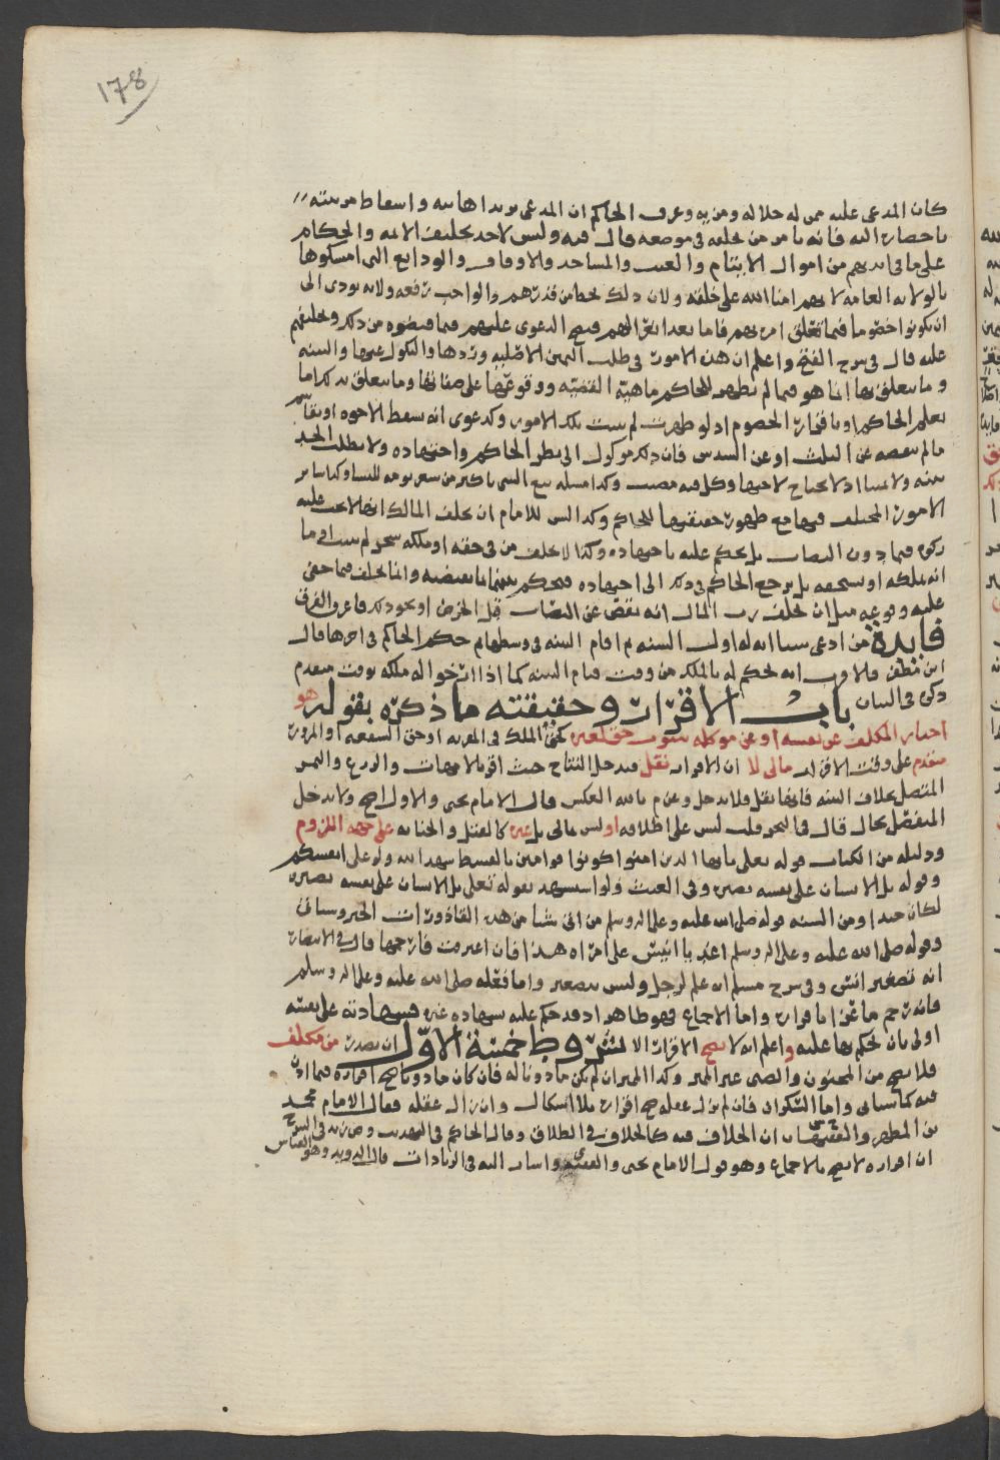 178
كان المدعى عليه ممن له جلاله ومزيه وعرف الحاكم ان المدعى يريد اهانته واسقاط مرتبته
باحضاره اليه فانه يامر من يحلفه في موضعه قال فيه وليس لاحد تحليف الائمه والحكام
على ما في ايديهم من اموال الايتام والغيب والمساجد والاوقاف والودايع التي امسكوها
بالولايه العامه لانهم امنا الله على خلقه ولان ذلك يحط من قدرهم والواجب رفعه ولانه يودى الى
ان يكونوا خصوما فيما تعلق امره بهم فاما بعد انعزالهم فيصح الدعوى عليهم فيما قبضوه من ذلك وتحليفهم
عليه قال في شرح الفتح واعلم ان هذه الامور في طلب اليمين الاصليه وردها والنكول عنها والبينه
وما يتعلق بها انما هو فيما لم يظهر للحاكم ماهية القضيه ووقوعها على صفاتها وما يتعلق بذلك اما
بعلم الحاكم او باقرار الخصوم اذ لو ظهرت لم يثبت تلك الامور وكدعوى انه يسقط الاخوه او يقاسم
ما لم ينقصه عن الثلث او عن السدس فان ذلك موكول الى نظر الحاكم واجتهاده ولا يطلب الجد
بينه ولا يمينا اذ لا يحتاج لاجتهاد وكل فيه مصيب وكذا مسله بيع الشي باكثر من سعر يومه للنسا وكذا سائر
الامور المختلف فيها مع ظهور حقيقتها للحاكم وكذا ليس للامام ان يحلف المالك انها لا تجب عليه
زكوه فيما دون النصاب بل يحكم عليه باجتهاده وكذا لا يحلف من في حقه او ملكه شجر لم يثبت اذ ما
انه يملكه او يستحقه بل يرجع الحاكم في ذلك الى اجتهاده فيحكم بينهما بما يقتضيه وانما يحلف فيما خفي
عليه وقوعه مثل ان يحلف رب المال انه نقص عن النصاب قبل الخرص او نحو ذلك فاعرف الفرق
فايدة من ادعى شيا انه له اول السنه ثم اقام البينه في وسطها ثم حكم الحاكم في اخرها قال
ابن مظفر فالاقرب انه يحكم له بالملك من وقت قيام البينه كما اذا ارخوا له ملكه بوقت متقدم
ذكره في البيان باب الاقرار وحقيقته ما ذكره بقوله هو
اخبار المكلف عن نفسه او عن موكله بثبوت حق لغيره كحق الملك في العربه او حق الشفعه او المرور
متقدم على وقت الاقرار مالي لا ان الاقرار نقل فيدخل النتاج حيث اقر بالامهات والزرع والثمر
المتصل بخلاف البينه فانها نقل فلا يدخل وعن م بالله العكس قال الامام يحيى والاول اصح ولا يدخل
المنفصل بحال قال في البحر قلت ليس على اطلاقه او ليس مالي بل غيره كالقتل والجنايه على جهه اللزوم
ودليله من الكتاب قوله تعلى يا ايها الذين امنوا كونوا قوامين بالقسط شهدا لله ولو على انفسكم
وقوله بل الانسان على نفسه بصيره وفي الغيث ولو استشهد بقوله تعلى بل الانسان على نفسه بصيره
لكان جيدا ومن السنه قوله صلى الله عليه وعلى اله وسلم من اتى شيا من هذه القاذورات الخبر وسياتي
وقوله صلى الله عليه وعلى اله وسلم اغد يا انيس على امراة هذا فان اعترفت فارجمها قال في الانتصار
انه تصغير انس وفي شرح مسلم انه علم لرجل وليس بتصغير واما فعله صلى الله عليه وعلى اله وسلم
فانه رجم ماعزا باقراره واما الاجماع فهو ظاهر اذ قد حكم عليه بشهادة غيره فشهادته على نفسه
اولى بان نحكم بها عليه واعلم انه لا يصح الاقرار الا لشروط خمسة الاول ان يصدر من مكلف
فلا يصح من المجنون والصبى غير المميز وكذا المميز ان لم يكن ماذونا له فان كان ماذونا صح اقراره فيما اذن
فيه كما سياتي واما السكران فان لم يزل عقله صح اقراره بلا اشكال وان زال عقله فقال الامام محمد
بن المطهر والفقيه ان الخلاف فيه كالخلاف في الطلاق وقال الحاكم في التهذيب وص زيد في الشرح
ان اقراره لا يصح بالاجماع وهو قول الامام يحيى والفقيه واشار اليه في الزيادات قال الدويد وهو القياس